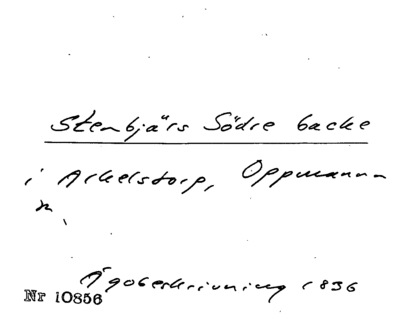 Stenbjärs Södre backe
i Arkelstorp, Oppmanna
n.
Ägobeskrivning 1836
Nr 10856